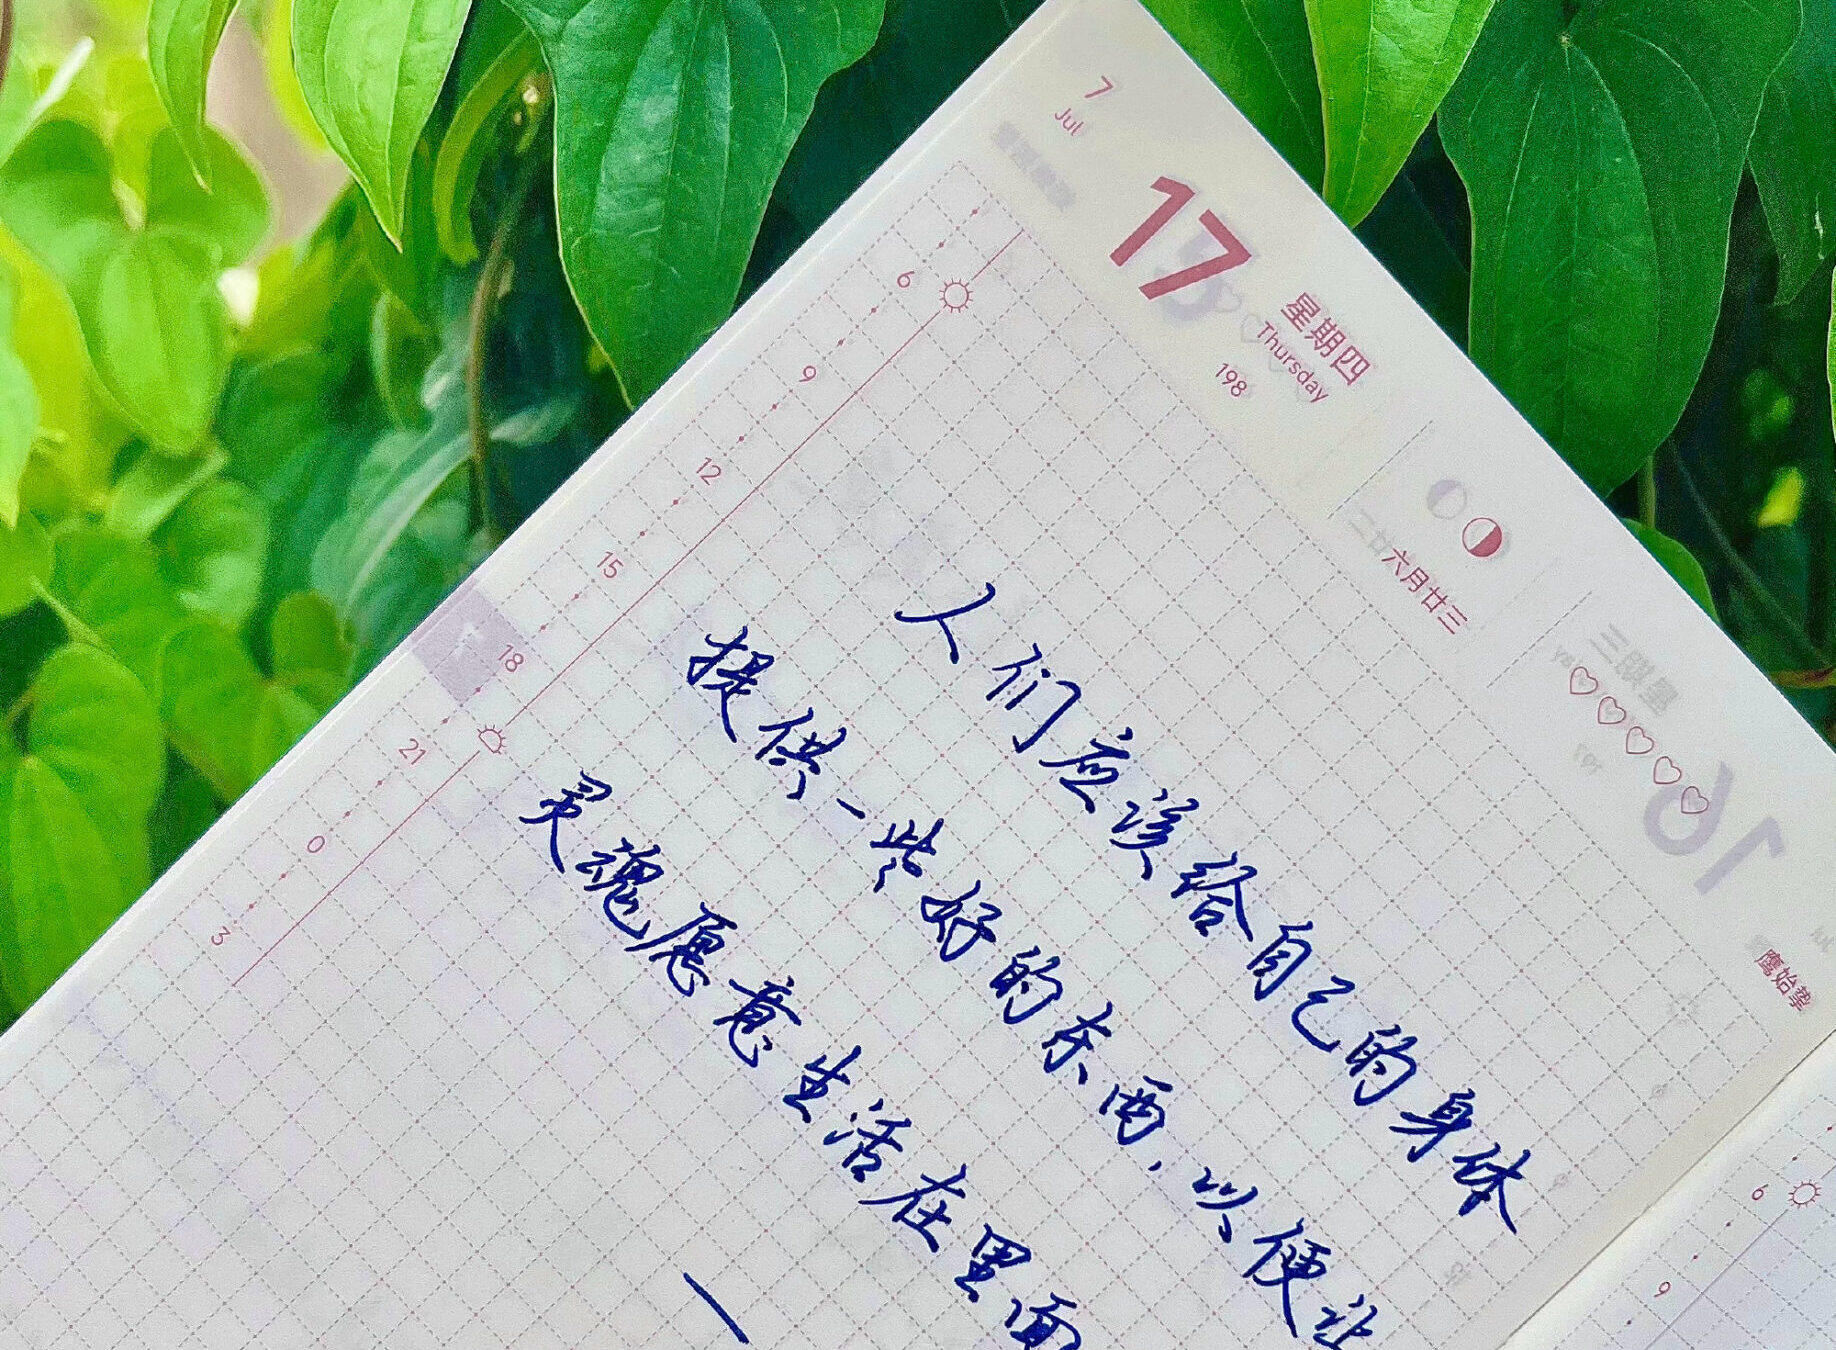 7
Jul
17
星期四
Thursday
198
六月廿三
鹰始挚
6
9
12
15
18
21
0
3
人们应该给自己的身体
提供一些好的东西,以便让
灵魂愿意生活在里面
—
6
9